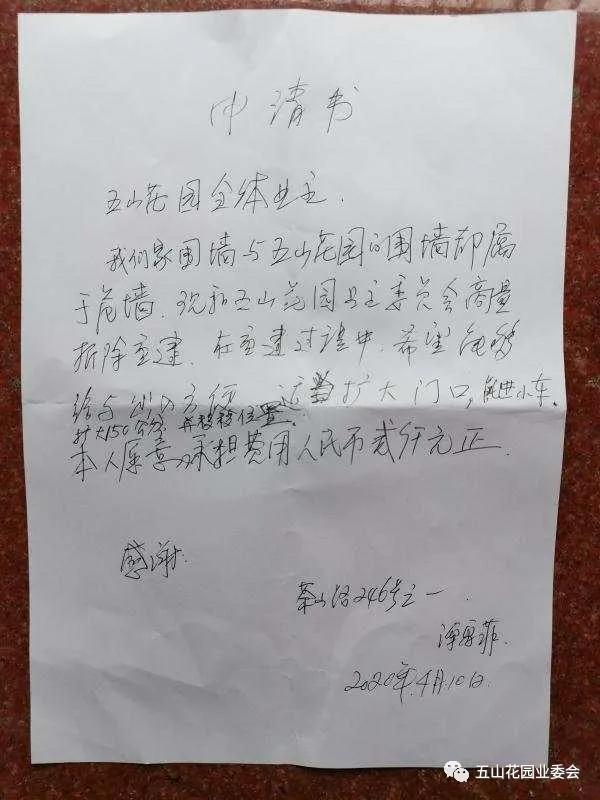 申请书
五山花园全体业主.
我们家围墙与五山花园的围墙都属
于危墙.现和五山花园业主委员会商量
拆除重建.在重建过程中.希望能够
给与出入方便.适当扩大门口,能进小车.
扩大150公分.并移移位置.
本人愿意承担费用人民币贰仟元正.
感谢.
茶山路246号之一.
2020年.4月.10日.
五山花园业委会